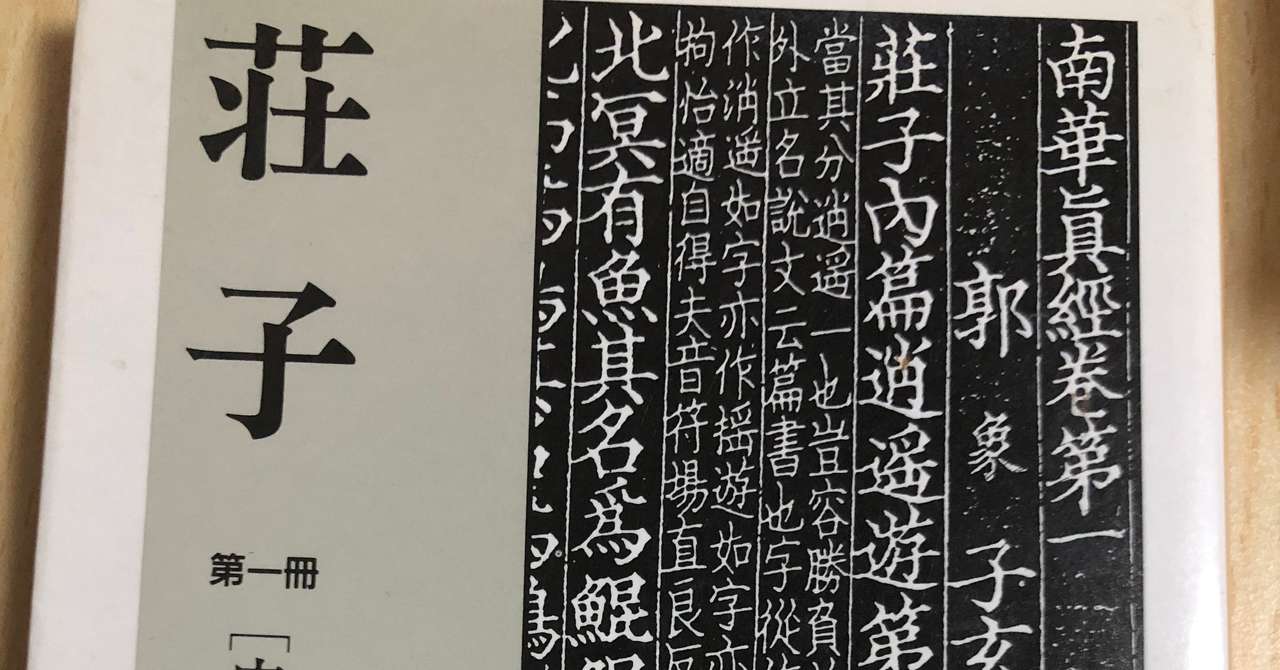 荘子
第一冊
南華眞經卷第一
郭象子玄
莊子內篇逍遥遊第
當其分逍遥一也豈容勝負
外立名説文云篇書也字從
作消遥如字亦作揺遊如字亦
拘怡適自得夫音符場直良
北冥有魚其名爲鯤